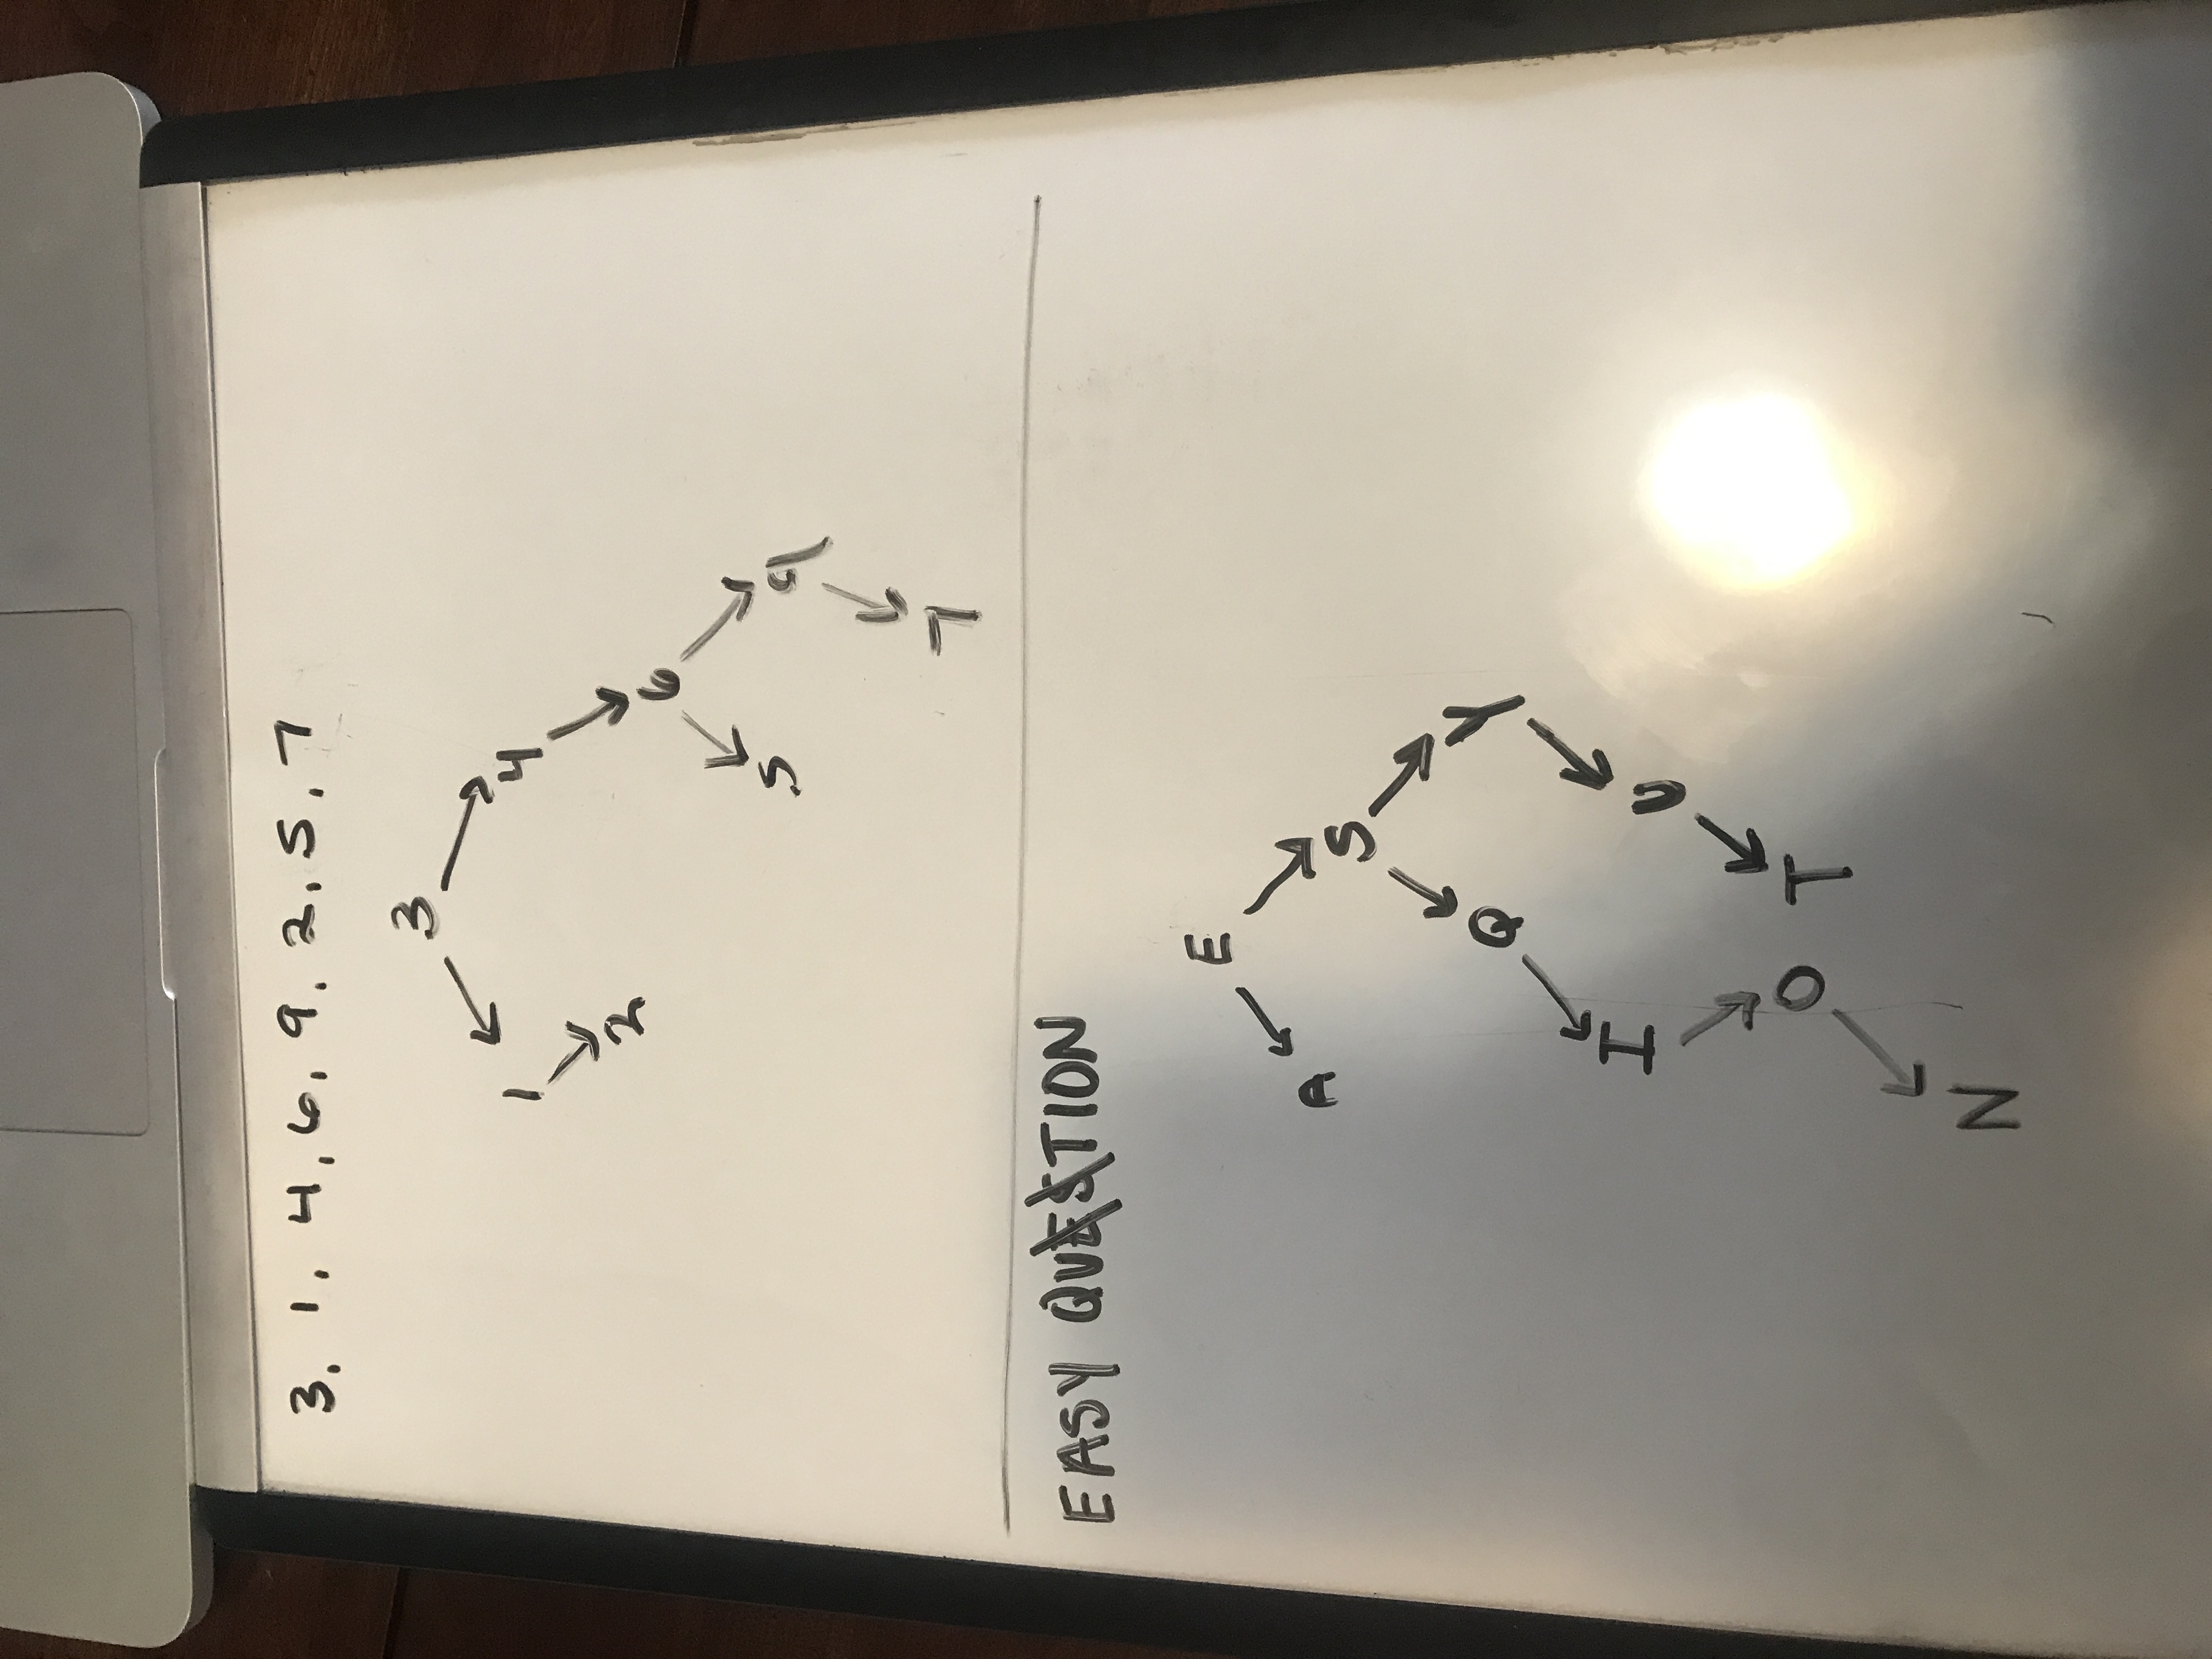 3, 1, 4, 6, 9, 2, 5, 7
3
1 4
2
6
5 9
7
EASY QUESTION
E
A
S
Q Y
I U
O T
N